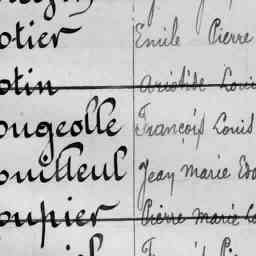 otier Emile Pierre
otin Aristide Louis
ougeolle François Louis
ouilleul Jean Marie Edo
oupier Pierre Marie Lo